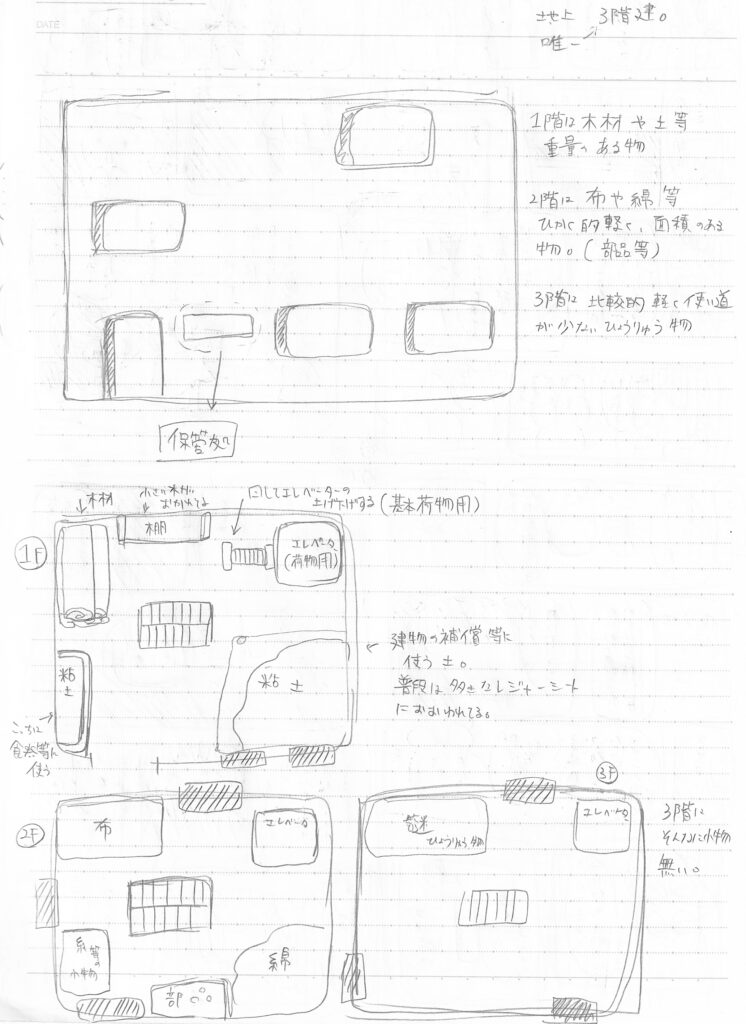 DATE
地上 3階建。
唯一
1階に木材や土等
重量のある物
2階に布や綿等
ひかく的軽く、面積のある
物。(部品等)
3階に比較的軽く使い道
が少ないひょうりゅう物
保管処
木材
小さい木が
おかれてる
回してエレベーターの
上げ下げする(基本荷物用)
1F
棚
エレベータ
(荷物用)
粘土
粘土
建物の補償等に
使う土。
普段は
レジャーシート
におおわれてる。
こっちは
使う
2F
布
エレベータ
糸等の
小物
部品
綿
3F
ひょうりゅう物
エレベータ
3階に
そんなに小物
無い。